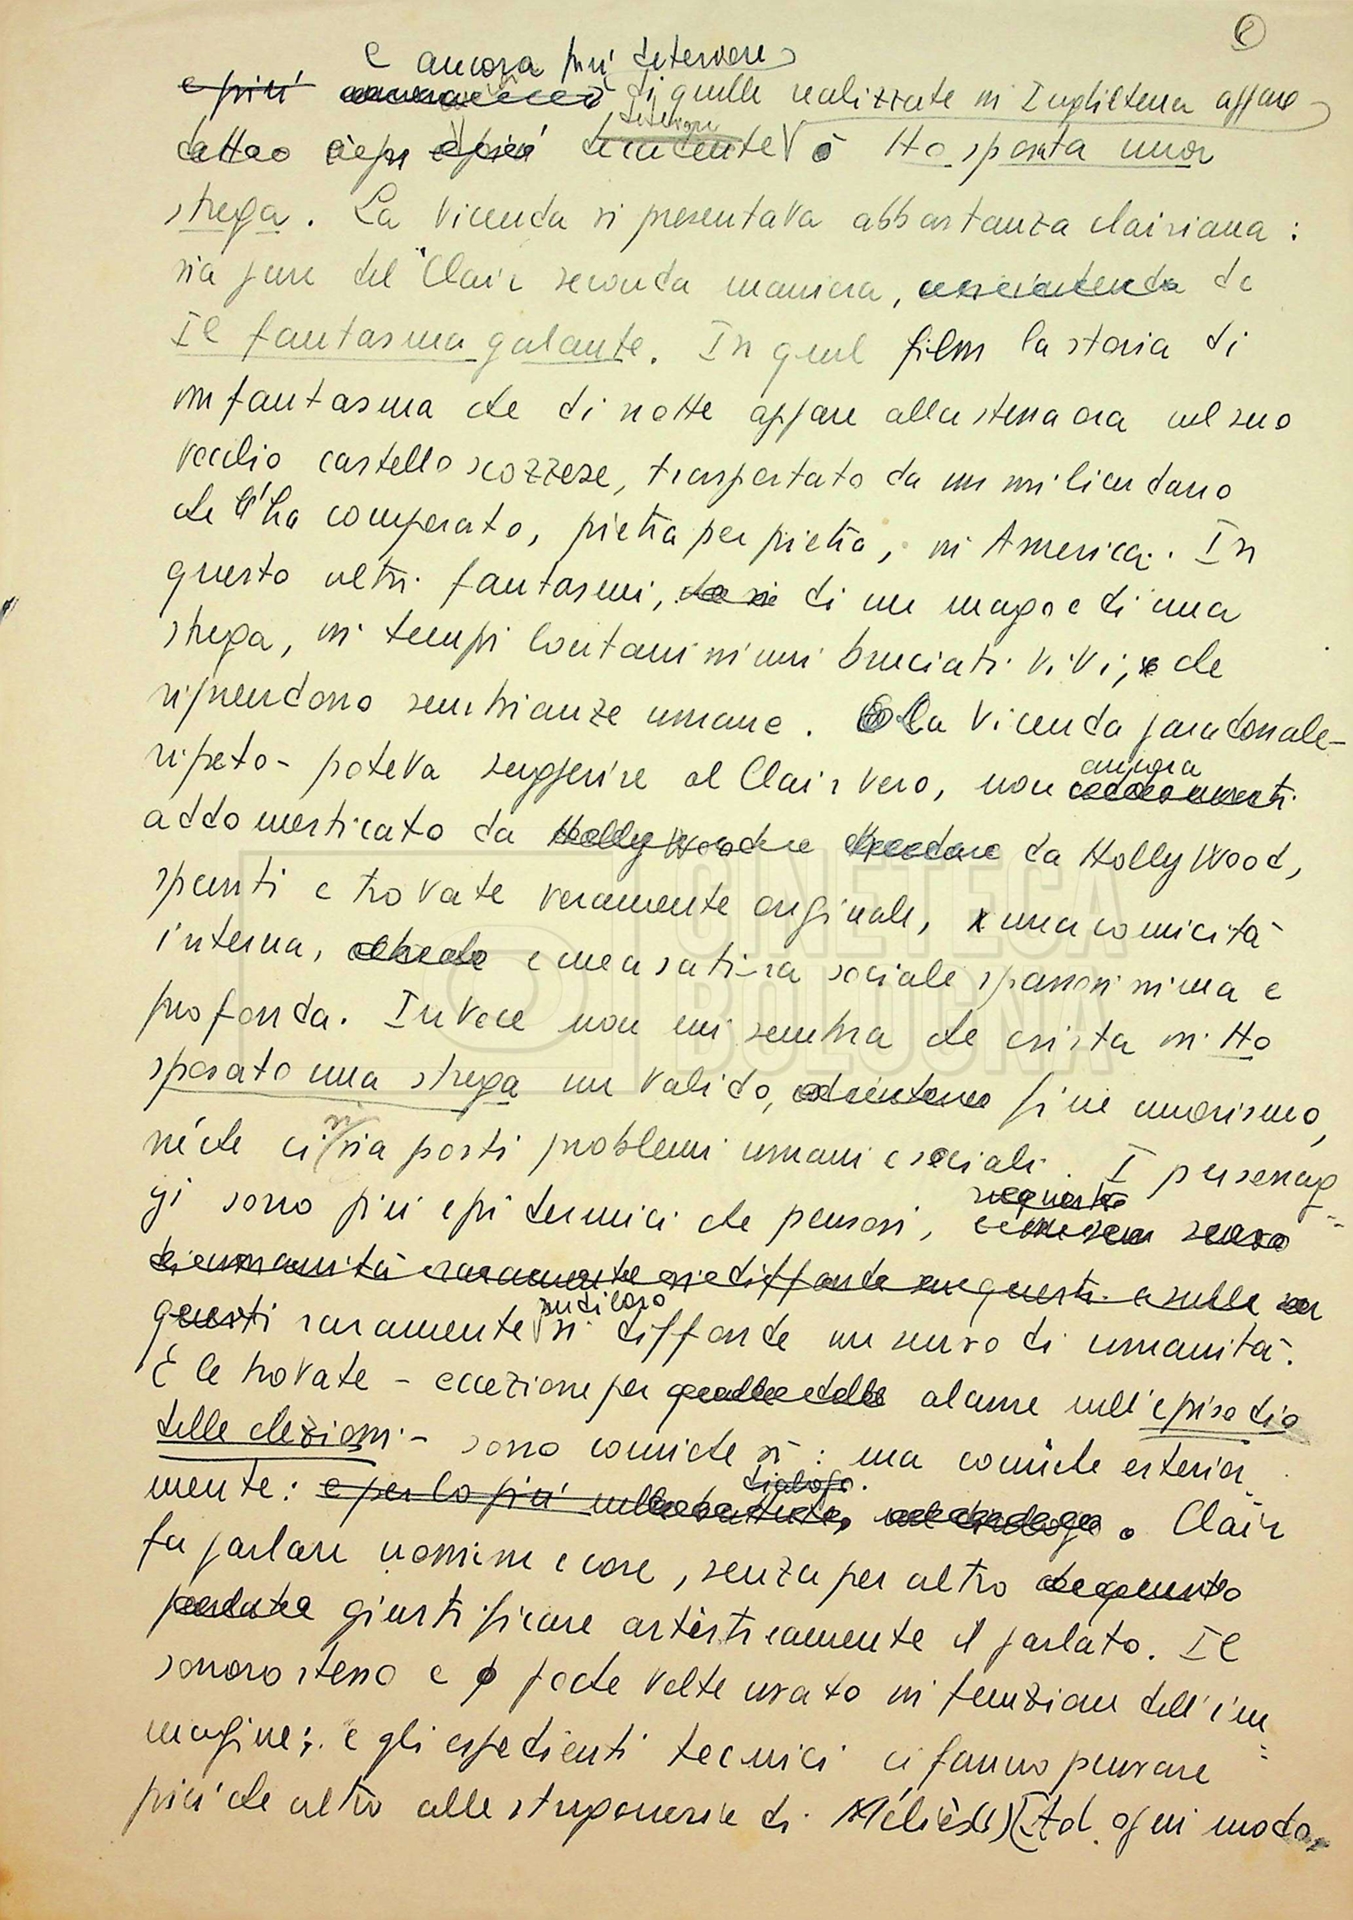 e ancora più deteriore
e più di quelle realizzate in Inghilterra appare
dattao deteriore
decadente è Ho sposata una
strega. La vicenda si presentava abbastanza clairiana:
sia pure del Clair seconda maniera, de
Il fantasma galante. In quel film la storia di
un fantasma che di notte appare alla stessa ora nel suo
vecchio castello scozzese, trasportato da un miliardario
che l'ha comperato, pietra per pietra, in America. In
questo altri fantasmi, di un mago e di una
strega, in tempi lontanissimi bruciati vivi, che
riprendono sembianze umane. La vicenda paradossale -
ripeto - poteva suggerire al Clair vero, non ancora
addomesticato da Hollywood da Hollywood,
spunti e trovate veramente originali, una comicità
interna, e una satira sociale spassosissima e
profonda. Invece non mi sembra che esista in Ho
sposato una strega un valido, fine umorismo,
né che ci si sia posti problemi umani e sociali. I personag=
gi sono più epidermici che pensosi,
di umanità raramente si diffonde su questi e sulle
questi raramente su di loro si diffonde un senso di umanità.
E le trovate - eccezione per quelle delle alcune nell'episodio
delle elezioni - sono comiche sì: ma comiche esterior
mente: e per lo più nelle battute, dialogo. Clair
fa parlare uomini e cose, senza per altro
giustificare artisticamente il parlato. Il
sonoro stesso è poche volte usato in funzione dell'im=
magine; e gli espedienti tecnici ci fanno pensare
più che altro alle stregonerie di Méliès (1) (Ad ogni modo,
CINETECA
BOLOGNA